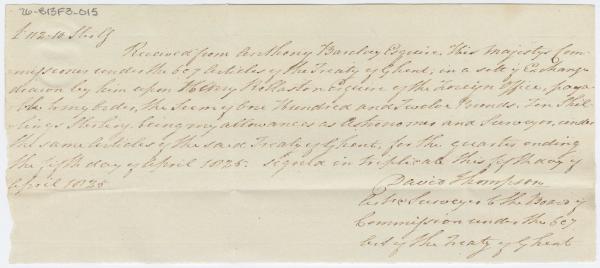 26-B13F3-015
£112-10 Sterlg
Received from Anthony Barclay Esquire, His Majestys Com-
missioner under the 6 & 7 Articles of the Treaty of Ghent, in a set of Exchange
drawn by him upon Henry Rolleston Esquire of the Foreign Office, paya-
ble to my order, the Sum of One Hundred and Twelve Pounds. Ten Shil-
lings Sterling, being my allowances as Astronomer and Surveyor, under
the same Articles of the said Treaty of Ghent, for the quarter ending
the fifth day of April 1825. Signed in triplicate this fifth day of
April 1825
David Thompson
Surveyor to the Board of
Commission under the 6 & 7
Art of the Treaty of Ghent